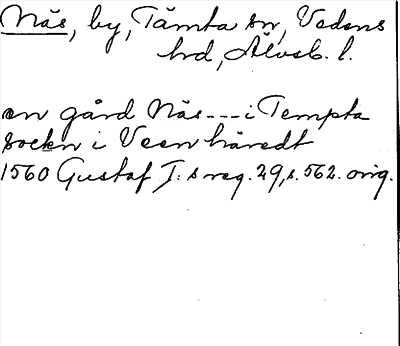 Näs, by, Tämta sn, Vedens
hrd, Älvsb. l.
en gård Näs---i Tempta
sockn i Veen häredt
1560 Gustaf I:s reg. 29, s. 562. orig.